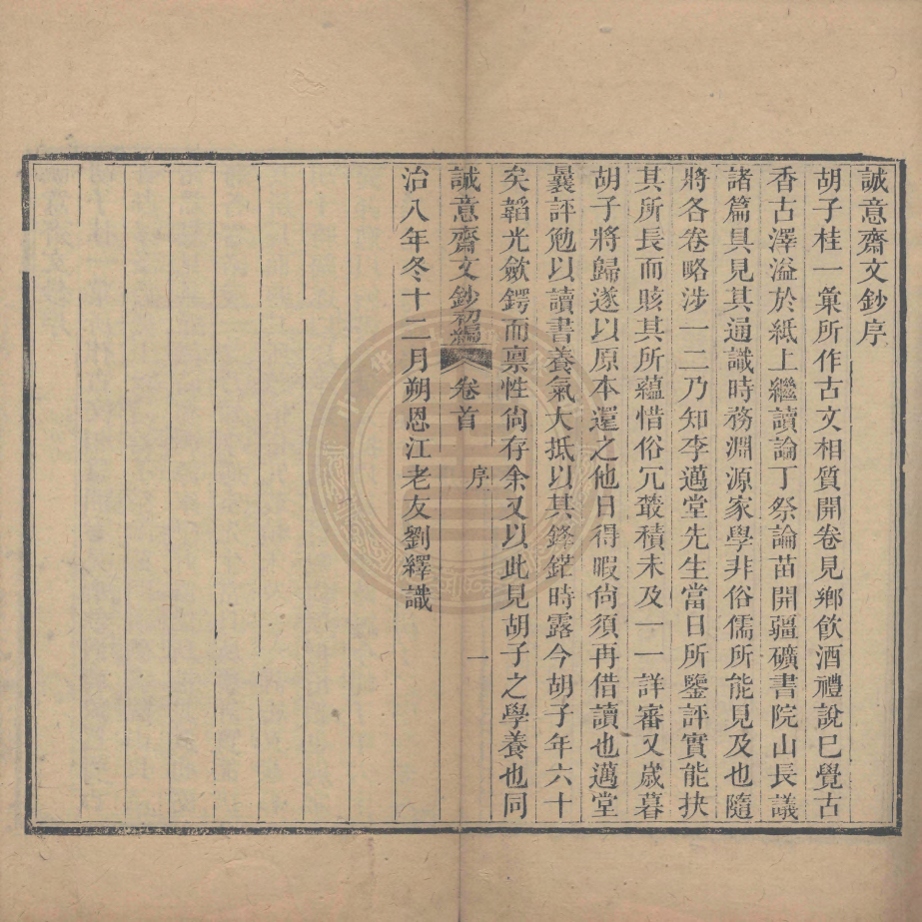 誠意齋文鈔序
胡子桂一彙所作古文相質開卷見鄉飮酒禮說已覺古
香古澤溢於紙上繼讀論丁祭論苗開疆礦書院山長議
諸篇具見其通識時務淵源家學非俗儒所能見及也隨
將各卷略涉一二乃知李邁堂先生當日所鑒評實能抉
其所長而賅其所蘊惜俗冗叢積未及一一詳審又歲暮
胡子將歸遂以原本還之他日得暇尙須再借讀也邁堂
曩評勉以讀書養氣大抵以其鋒鋩時露今胡子年六十
矣韜光斂鍔而禀性尙存余又以此見胡子之學養也同
誠意齋文鈔初編 卷首 序 一
治八年冬十二月朔恩江老友劉繹識